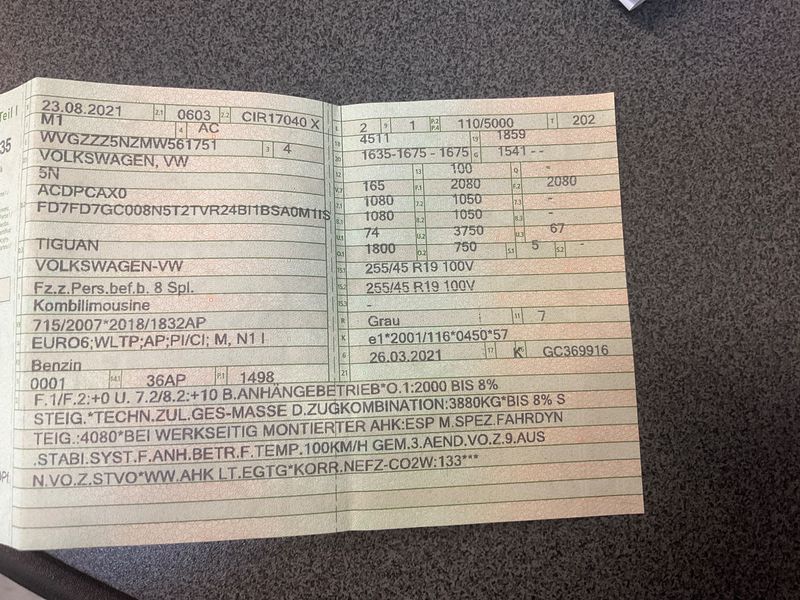 Teil I
23.08.2021 2.1 0603 2.2 CIR17040 X
M1 4 AC
WVGZZZ5NZMW561751 3 4
VOLKSWAGEN, VW
5N
ACDPCAX0
FD7FD7GC008N5T2TVR24BI1BSA0M1IS
TIGUAN
VOLKSWAGEN-VW
Fz.z.Pers.bef.b. 8 Spl.
Kombilimousine
715/2007*2018/1832AP
EURO6;WLTP;AP;PI/CI; M, N1 I
Benzin
0001 14.1 36AP P.1 1498
L 2 9 1 P.2 P.4 110/5000 T 202
18 4511 19 1859
20 1635-1675 - 1675 G 1541 - -
12 - 13 100 Q -
V.7 165 F.1 2080 F.2 2080
7.1 1080 7.2 1050 7.3 -
8.1 1080 8.2 1050 8.3 -
U.1 74 U.2 3750 U.3 67
O.1 1800 O.2 750 S.1 5 S.2 -
15.1 255/45 R19 100V
15.2 255/45 R19 100V
15.3 -
R Grau 11 7
K e1*2001/116*0450*57
6 26.03.2021 17 K 16 GC369916
21
F.1/F.2:+0 U. 7.2/8.2:+10 B.ANHÄNGEBETRIEB*O.1:2000 BIS 8%
STEIG.*TECHN.ZUL.GES-MASSE D.ZUGKOMBINATION:3880KG*BIS 8% S
TEIG.:4080*BEI WERKSEITIG MONTIERTER AHK:ESP M.SPEZ.FAHRDYN
.STABI.SYST.F.ANH.BETR.F.TEMP.100KM/H GEM.3.AEND.VO.Z.9.AUS
N.VO.Z.STVO*WW.AHK LT.EGTG*KORR.NEFZ-CO2W:133***